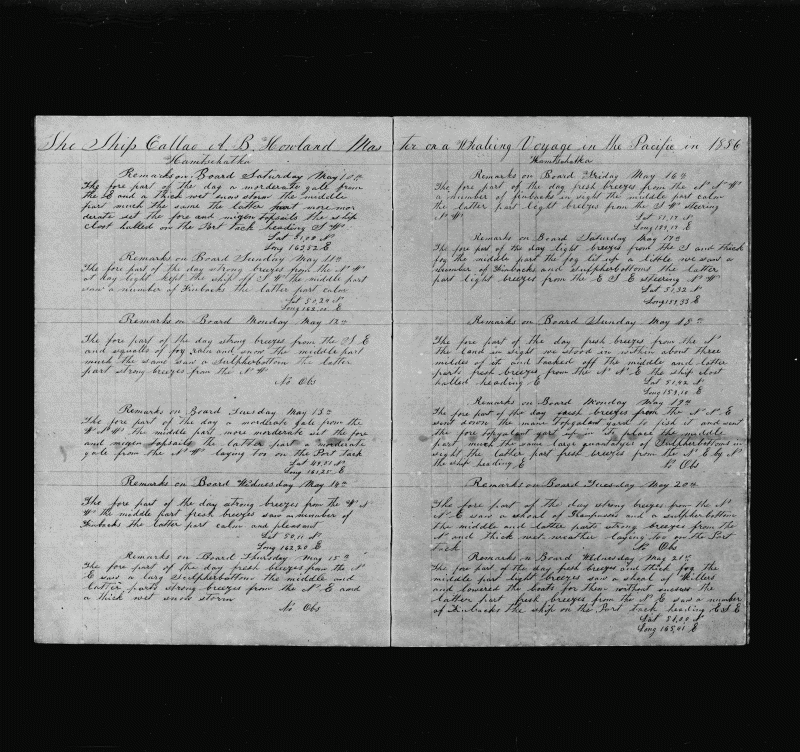 The Ship Callao A. B. Howland Mas
Kamtschatka
Remarks on Board Saturday May 10th
The fore part of the day a morderate gale from
the E and a thick wet snow storm the middle
part much the same the latter part more mor
derate set the fore and mizen topsails the ship
clost halled on the Port tack heading S W
Lat 51,00 N
Long 162,52 E
Remarks on Board Sunday May 11th
The fore part of the day strong breezes from the N W
at day light kept the ship of S W the middle part
saw a number of Finbacks the latter part calm
Lat 50,24 N
Long 162,10 E
Remarks on Board Monday May 12th
The fore part of the day strong breezes from the S E
and squalls of fog rain and snow the middle part
much the same saw a Sulpherbottom the latter
part strong breezes from the N W
No Obs
Remarks on Board Tuesday May 13th
The fore part of the day a morderate gale from the
W N W the middle part more morderate set the fore
and mizen topsails the latter part a moderate
gale from the N W laying too on the Port tack
Lat 49,51 N
Long 161,25 E
Remarks on Board Wednesday May 14th
The fore part of the day strong breezes from the W N
W the middle part fresh breezes saw a number of
Finbacks the latter part calm and pleasant
Lat 50,11 N
Long 162,20 E
Remarks on Board Thursday May 15th
The fore part of the day fresh breezes from the N
E saw a larg Sulpherbottom the middle and
latter parts strong breezes from the N E and
a thick wet snow storm
No Obs
ter on a Whaleing Voyage in the Pacific in 1856
Kamtschatka
Remarks on Board Friday May 16th
The fore part of the day fresh breezes from the N N W
a number of finbacks in sight the middle part calm
the latter part light breezes from the S W steering
N W
Lat 51,17 N
Long 159,17 E
Remarks on Board Saturday May 17th
The fore part of the day light breezes from the S and thick
fog the middle part the fog lit up a little we saw a
number of Finbacks and sulpherbottoms the latter
part light breezes from the E S E steering N W
Lat 51,32 N
Long 159,33 E
Remarks on Board Sunday May 18th
The fore part of the day fresh breezes from the N
the land in sight we stood in within about three
mildes of it and tacked off the middle and latter
parts fresh breezes from the N N E the ship clost
halled heading E
Lat 51,42 N
Long 159,10 E
Remarks on Board Monday May 19th
The fore part of the day fresh breezes from the N N E
sent down the mane topgalant yard to fish it and sent
the fore topgalant yard up in its place the middle
part much the same large quantatyes of Sulpherbottoms in
sight the latter part fresh breezes from the N E by N
the ship heading E
No Obs
Remarks on Board Tuesday May 20th
The fore part of the day strong breezes from the N
N E saw a shoal of Grampusses and a sulpherbottom
the middle and latter parts strong breezes from the
N and thick wet weather laying too on the Port
tack
No Obs
Remarks on Board Wednesday May 21st
The fore part of the day fresh breezes and thick fog the
middle part light breezes saw a shoal of Killers
and lowered the boats for them without success the
latter part fresh breezes from the N E saw a number
of Finbacks the ship on the Port tack heading E S E
Lat 51,00 N
Long 165,41 E